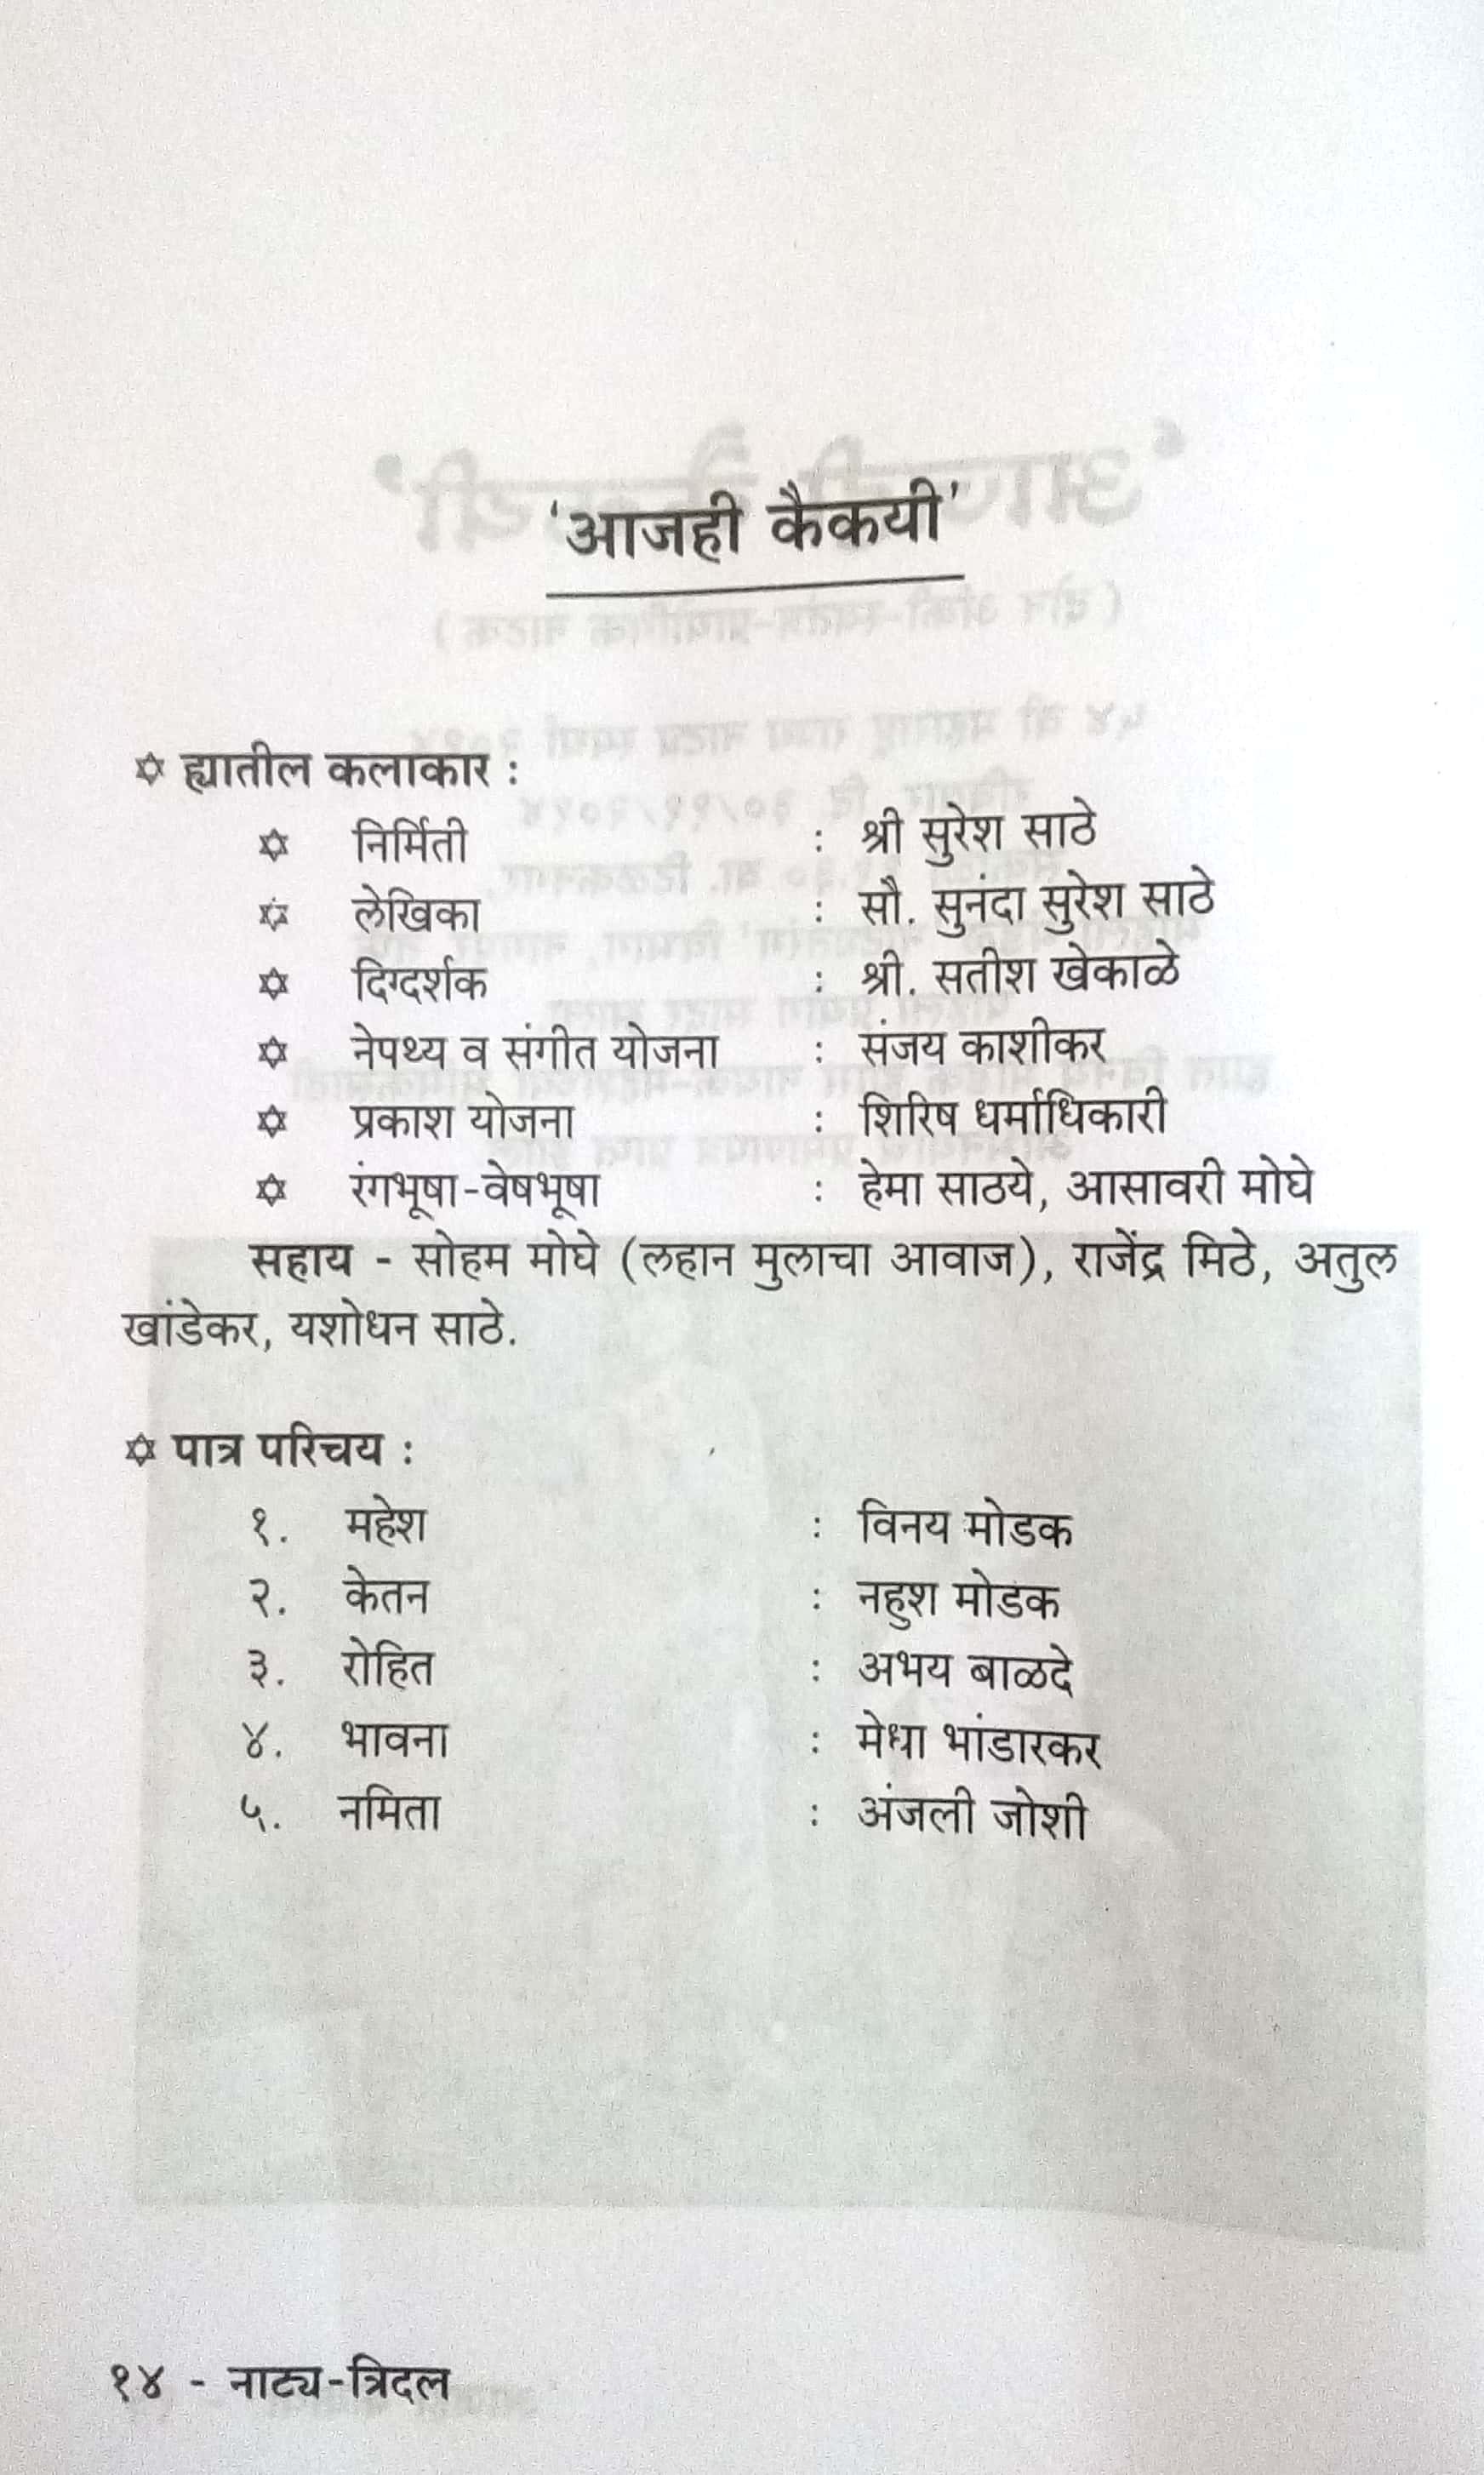 'आजही कैकयी'
✡ ह्यातील कलाकार :
✡ निर्मिती : श्री सुरेश साठे
✡ लेखिका : सौ. सुनंदा सुरेश साठे
✡ दिग्दर्शक : श्री. सतीश खेकाळे
✡ नेपथ्य व संगीत योजना : संजय काशीकर
✡ प्रकाश योजना : शिरिष धर्माधिकारी
✡ रंगभूषा-वेषभूषा : हेमा साठये, आसावरी मोघे
सहाय - सोहम मोघे (लहान मुलाचा आवाज), राजेंद्र मिठे, अतुल
खांडेकर, यशोधन साठे.
✡ पात्र परिचय :
१. महेश : विनय मोडक
२. केतन : नहुश मोडक
३. रोहित : अभय बाळदे
४. भावना : मेधा भांडारकर
५. नमिता : अंजली जोशी
१४ - नाट्य-त्रिदल